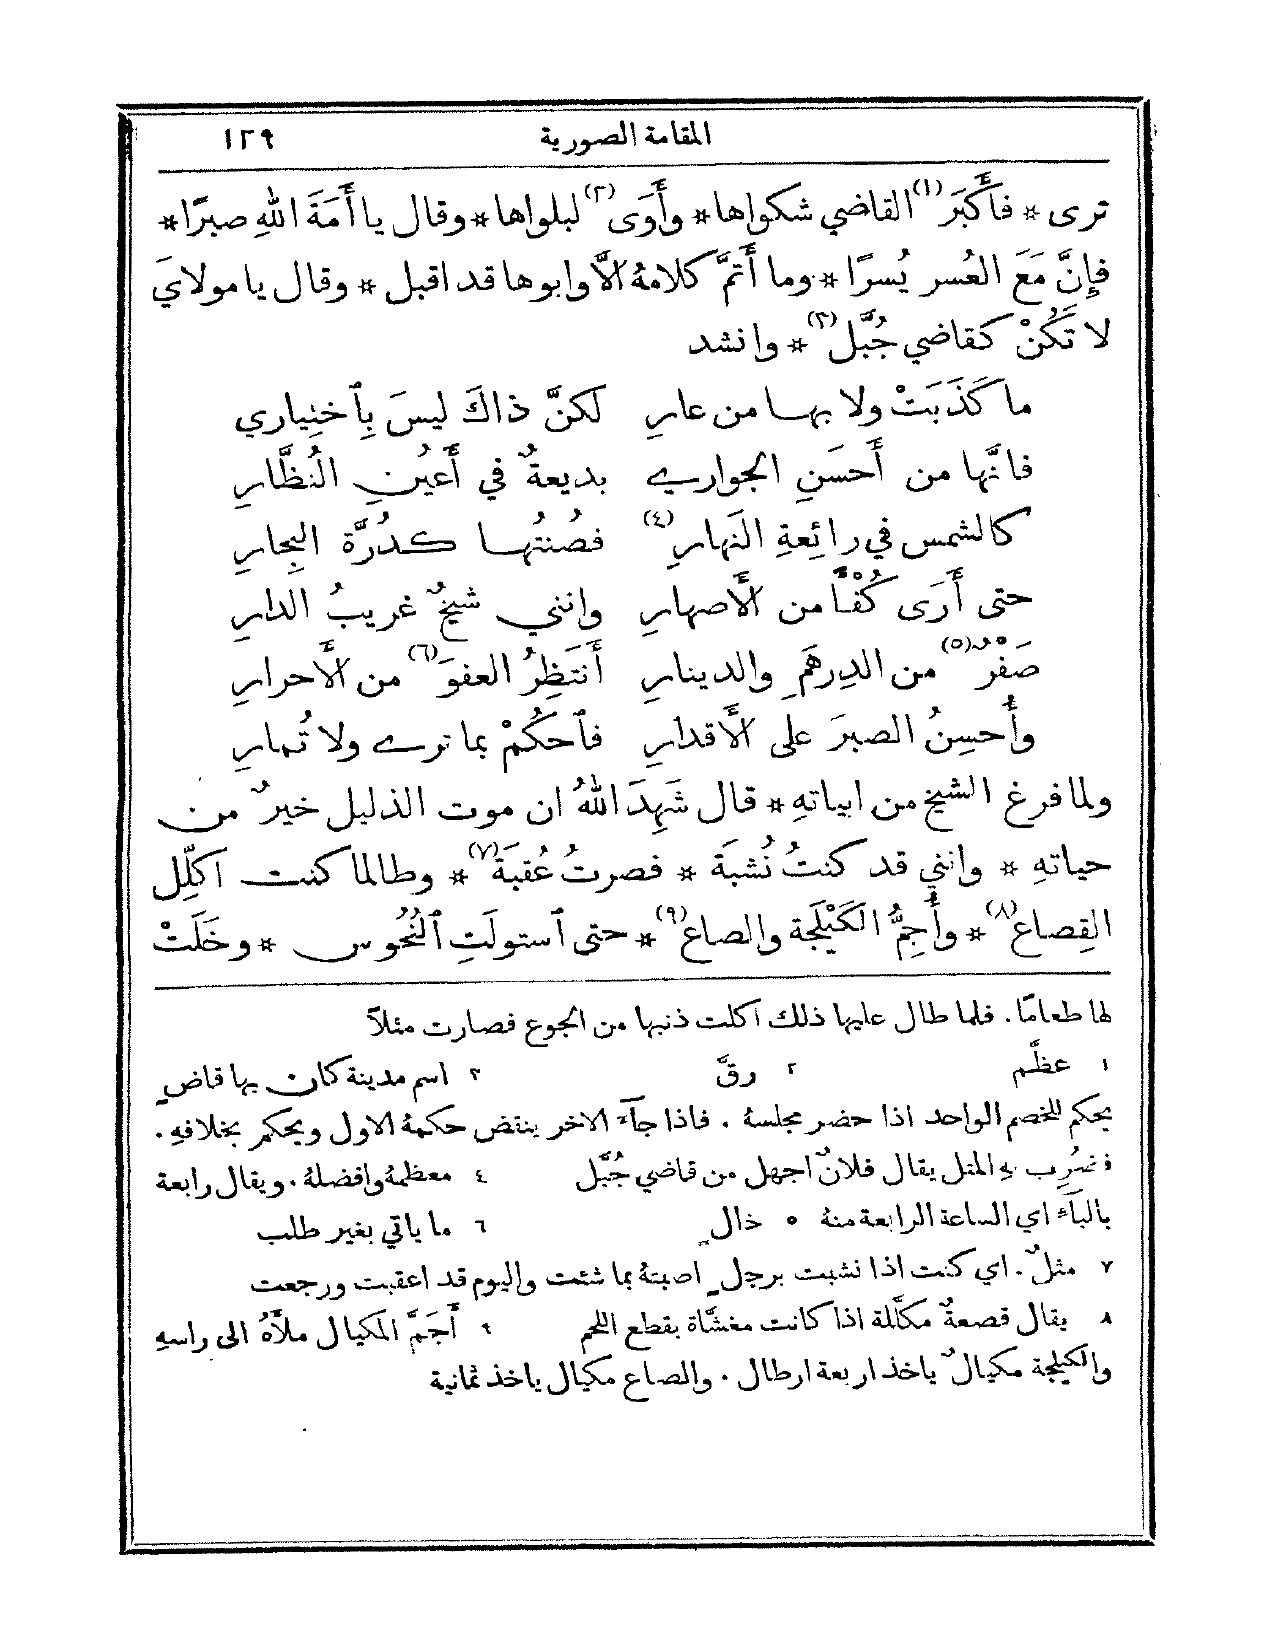 المقامة الصورية ١٢٩
ترى * فأَكْبَرَ(١) القاضي شكواها * وأَوَى(٢) لبلواها * وقال يا أَمَةَ اللهِ صبرًا *
فإِنَّ مَعَ العُسر يُسرًا * وما أَتمَّ كلامهُ الَّا وابوها قد اقبل * وقال يا مولايَ
لا تَكُنْ كقاضي جُبَّل(٣) * وانشد
ما كَذَبَتْ ولا بها من عارِ لكنَّ ذاكَ ليسَ بِاَختِياري
فانَّها من أَحسَنِ الجواري بديعةٌ في أَعيُنِ النُظَّارِ
كالشمس في رائِعةِ النهارِ(٤) فصُنتُها كدُرَّة البِحارِ
حتى أَرَى كُفْأً من الأَصهارِ وانني شيخٌ غريبُ الدارِ
صَفْرٌ(٥) من الدِرهَمِ والدينارِ أَنتَظِرُ العفوَ(٦) من الأَحرارِ
وأُحسِنُ الصبرَ على الأَقدارِ فاَحكُمْ بما ترى ولا تُمارِ
ولما فرغ الشيخ من ابياتهِ * قال شَهِدَ اللهُ ان موت الذليل خيرٌ من
حياتهِ * وانني قد كنتُ نُشبَةً * فصرتُ عُقبَةً(٧) * وطالما كنت اكلِّل
القِصاع(٨) * وأُجِمُّ الكَيْلَجة والصاع(٩) * حتى اَستولَتِ اَلنُحُوس * وخَلَتْ
لها طعامًا. فلما طال عليها ذلك اكلت ذنبها من الجوع فصارت مثلاً
١ عظَّم ٢ رقَّ ٣ اسم مدينة كان بها قاضٍ
يحكم للخصم الواحد اذا حضر مجلسهُ. فاذا جآءَ الاخر ينقض حكمهُ الاول ويحكم بخلافهِ.
فضُرِب بهِ المثل يقال فلانٌ اجهل من قاضي جُبَّل ٤ معظمهُ وافضلهُ. ويقال رابعة
بالبآء اي الساعة الرابعة منهُ ٥ خالٍ ٦ ما ياتي بغير طلب
٧ مثلٌ. اي كنت اذا نشبت برجلٍ اصبتهُ بما شئت واليوم قد اعقبت ورجعت
٨ يقال قصعةٌ مكلَّلة اذا كانت مغشَّاة بقطع اللحم ٩ أَجَمَّ المكيال ملأَهُ الى راسهِ
والكيلجة مكيالٌ ياخذ اربعة ارطال. والصاع مكيال ياخذ ثمانية